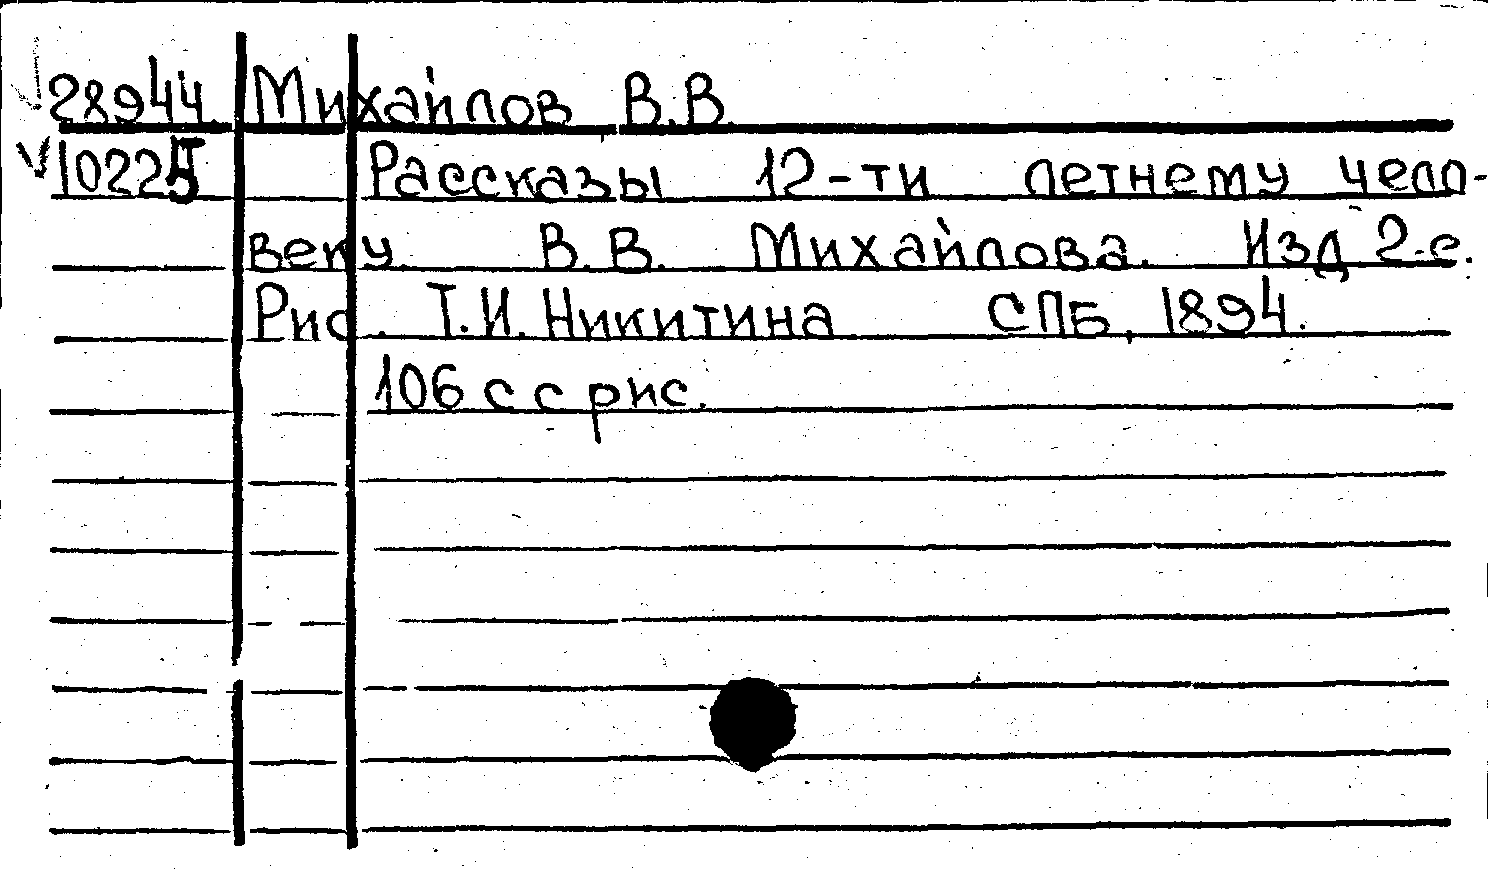 28944. Михайлов В.В.
10225 Рассказы 12-ти летнему чело-
веку. В.В. Михайлова. Изд 2-е.
Рис. Т.И. Никитина СПБ, 1894.
106 с с рис.